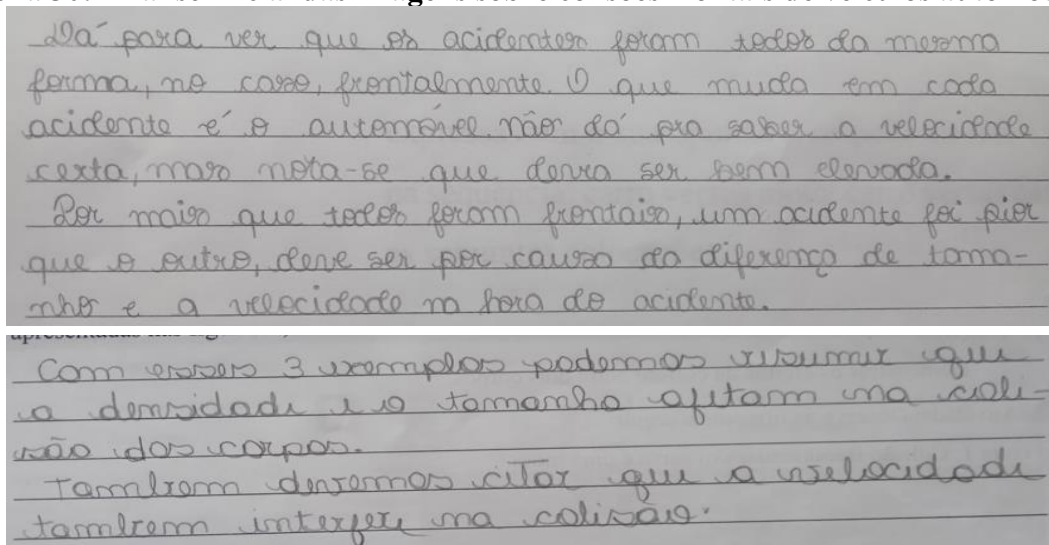 Dá para ver que os acidentes foram todos da mesma
forma, no caso, frontalmente. O que muda em cada
acidente é o automóvel. não dá pra saber a velocidade
certa, mas nota-se que devia ser bem elevada.
Por mais que todos foram frontais, um acidente foi pior
que o outro, deve ser por causa da diferença de tama-
nho e a velocidade na hora do acidente.
Com esses 3 exemplos podemos resumir que
a densidade e o tamanho afetam na coli-
são dos corpos.
Também devemos citar que a velocidade
também interfere na colisão.